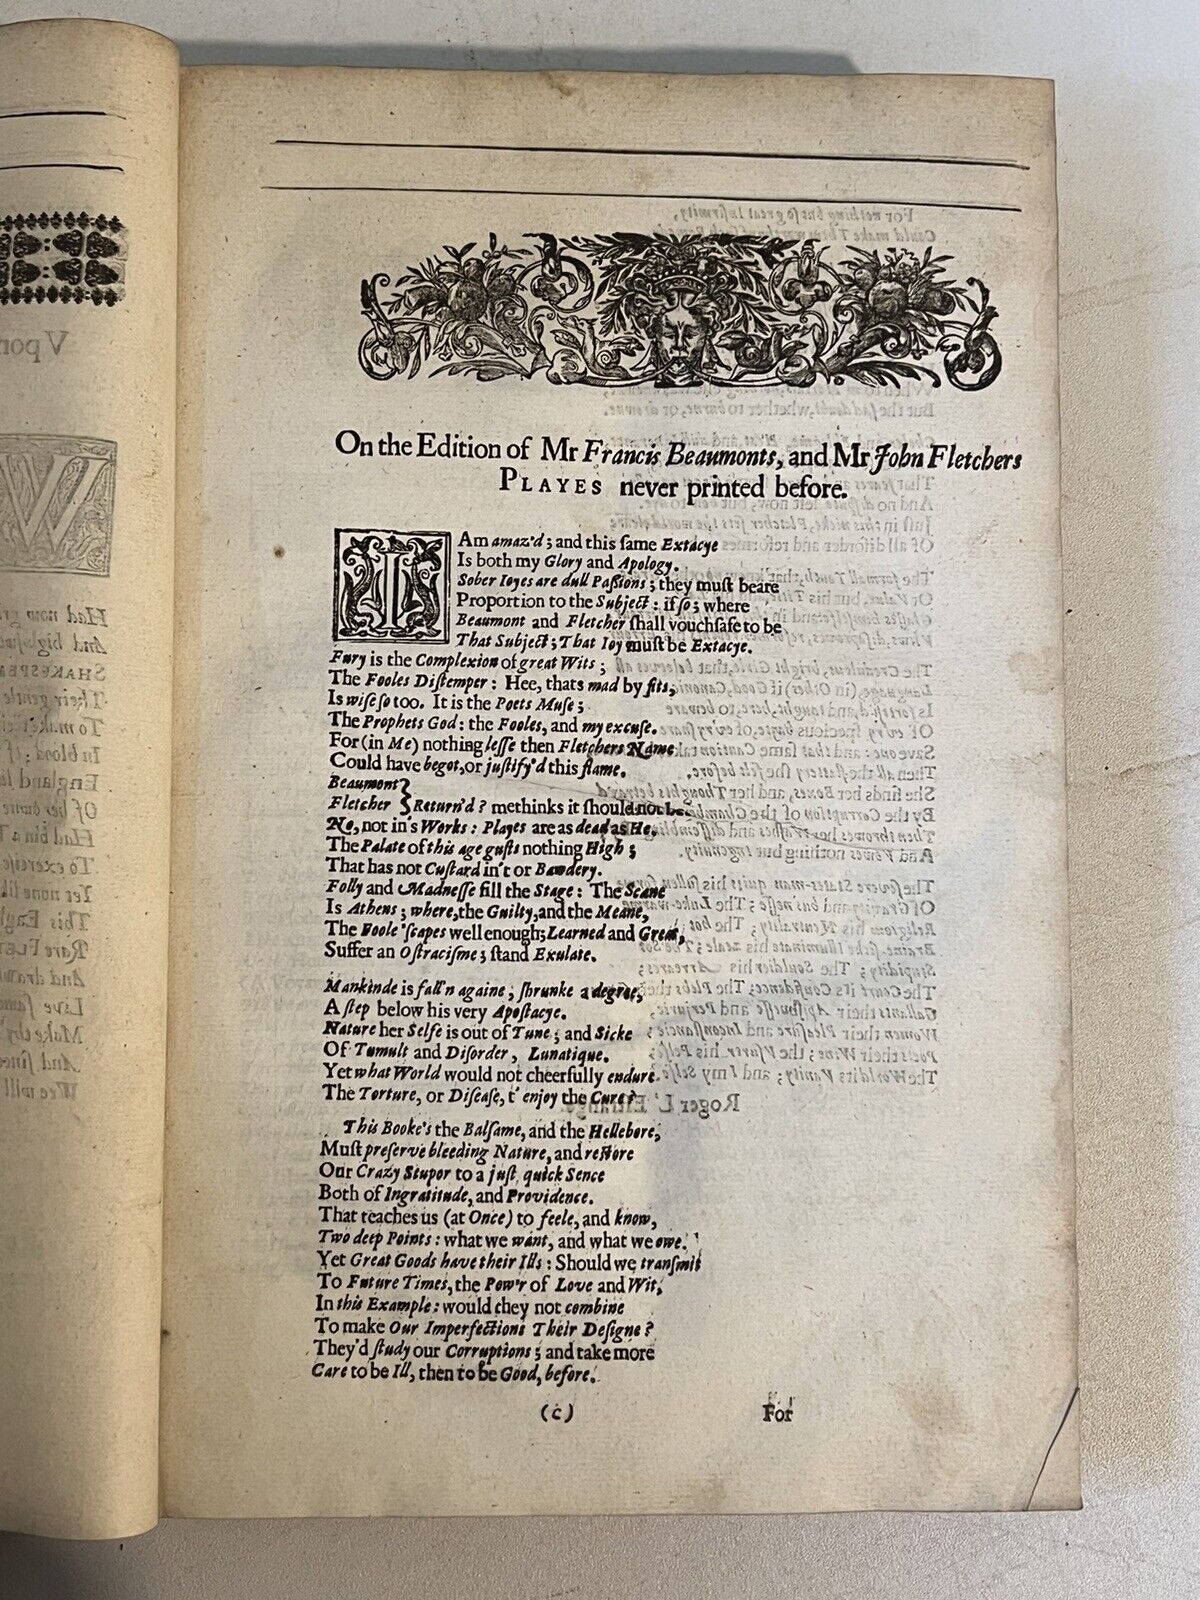 On the Edition of Mr Francis Beaumonts, and Mr John Fletchers
PLAYES never printed before.
I Am amaz'd; and this ſame Extacye
Is both my Glory and Apology.
Sober Ioyes are dull Paſſions; they muſt beare
Proportion to the Subject: if ſo; where
Beaumont and Fletcher ſhall vouchſafe to be
That Subject; That Ioy muſt be Extacye.
Fury is the Complexion of great Wits;
The Fooles Diſtemper: Hee, thats mad by fits,
Is wiſe ſo too. It is the Poets Muſe;
The Prophets God: the Fooles, and my excuſe.
For (in Me) nothing leſſe then Fletchers Name
Could have begot, or juſtify'd this flame.
Beaumont
Fletcher } Return'd? methinks it ſhould not be.
No, not in's Works: Playes are as dead as He.
The Palate of this age guſts nothing High;
That has not Cuſtard in't or Bawdery.
Folly and Madneſſe fill the Stage: The Scæne
Is Athens; where, the Guilty, and the Meane,
The Foole 'ſcapes well enough; Learned and Great,
Suffer an Oſtraciſme; ſtand Exulate.
Mankinde is fall'n againe, ſhrunke a degree,
A ſtep below his very Apoſtacye.
Nature her Selfe is out of Tune; and Sicke
Of Tumult and Diſorder, Lunatique.
Yet what World would not cheerfully endure
The Torture, or Diſeaſe, t' enjoy the Cure?
This Booke's the Balſame, and the Hellebore,
Muſt preſerve bleeding Nature, and reſtore
Our Crazy Stupor to a juſt quick Sence
Both of Ingratitude, and Providence.
That teaches us (at Once) to feele, and know,
Two deep Points: what we want, and what we owe.
Yet Great Goods have their Ills: Should we tranſmit
To Future Times, the Pow'r of Love and Wit,
In this Example: would they not combine
To make Our Imperfections Their Deſigne?
They'd ſtudy our Corruptions; and take more
Care to be Ill, then to be Good, before.
(c) For